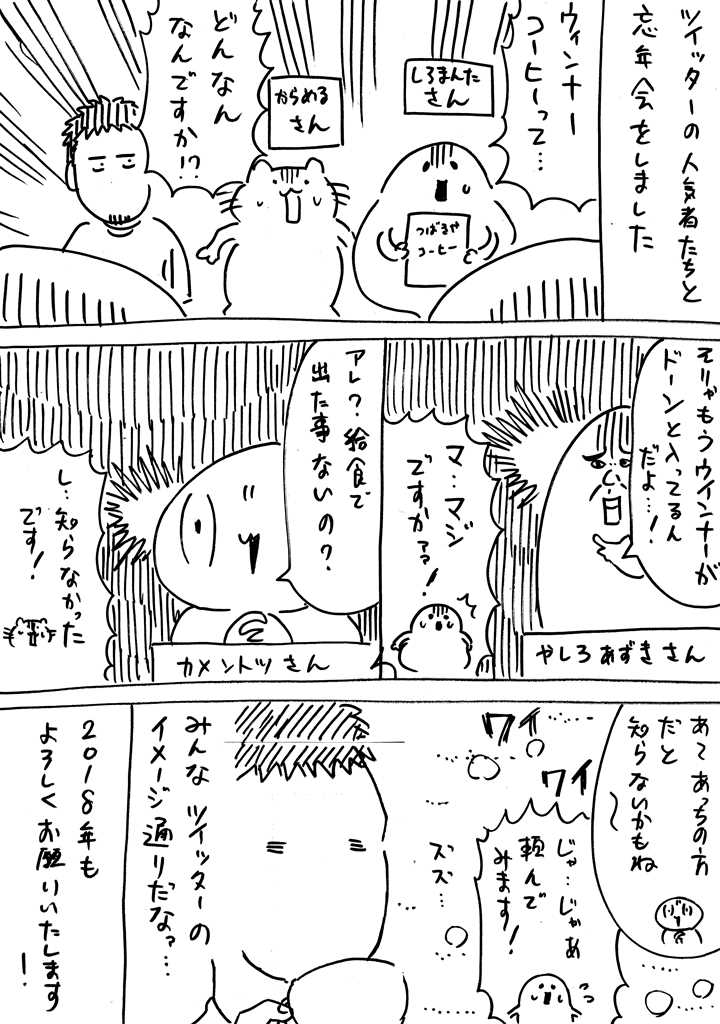 ツイッターの人気者たちと
忘年会をしました
ウィンナー
コーヒーって…
しろまんた
さん
つばるや
コーヒー
からめる
さん
どんなん
なんですか!?
そりゃもうウインナーが
ドーンと入ってるん
だよ…!
やしろあずきさん
マ…マジ
ですかァァ!
アレ?給食で
出た事ないの?
カメントツさん
し…知らなかった
です!
あてあっちの方
だと
知らないかもね
〜
ワイ
ワイ
じゃ…じゃあ
頼んで
みます!
ズズ…
みんなツイッターの
イメージ通りだなァ…
2018年も
よろしくお願いいたします
!